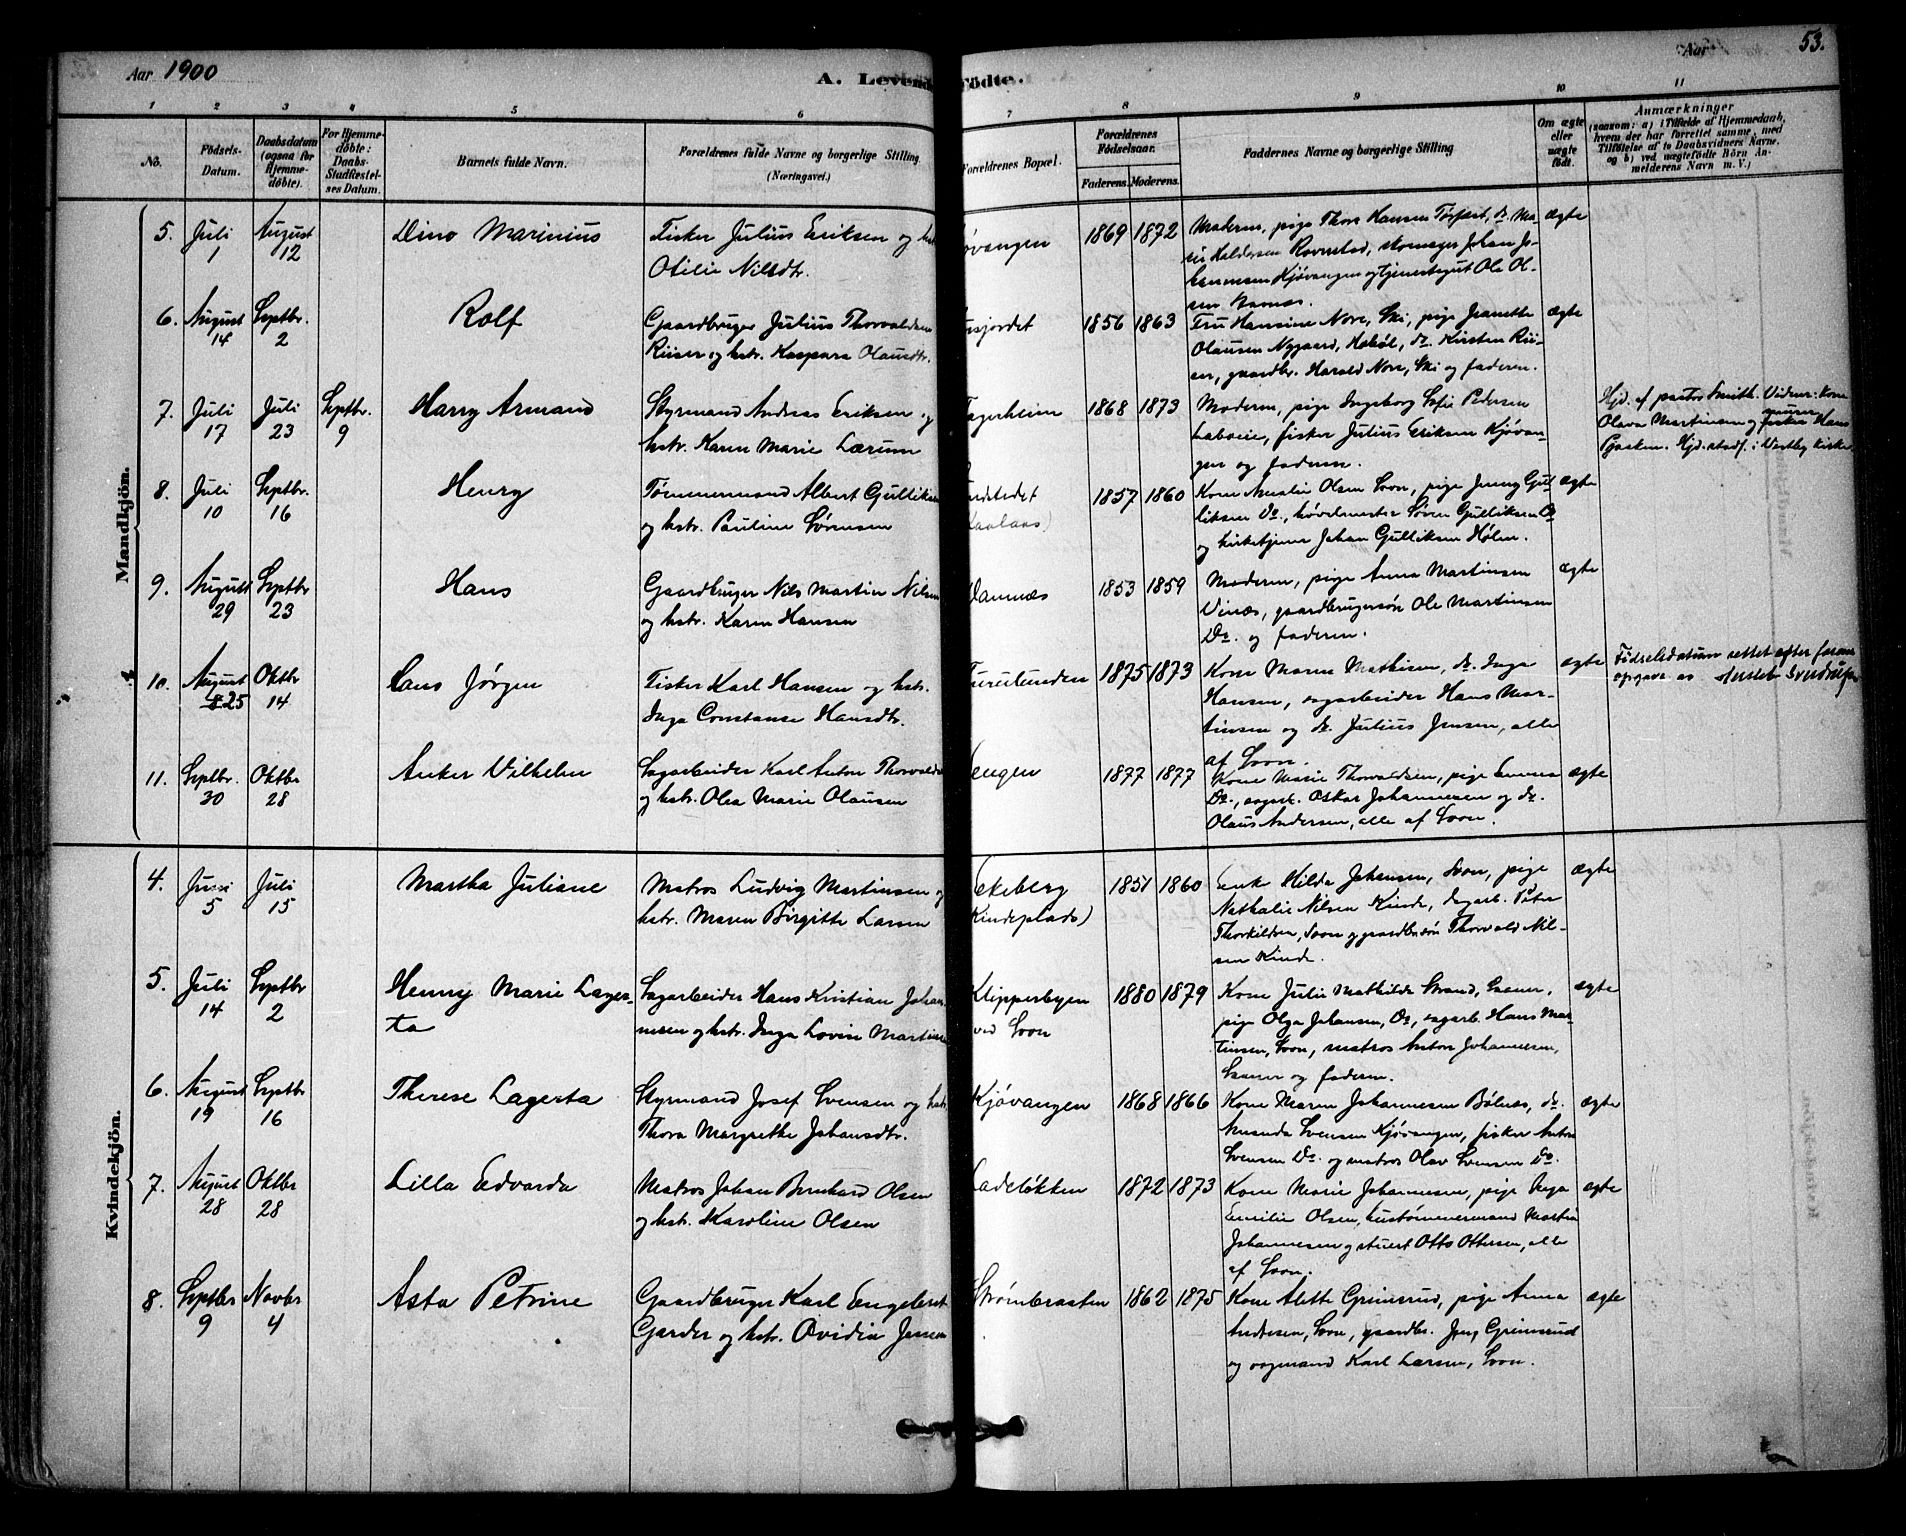 Aar 1900
A. Levende Fødte.
Aar
53.
1 2 3 4 5 6 7 8 9 10 11
No.
Fødsels-Datum.
Daabsdatum (ogsaa for Hjemmedøbte).
For Hjemmedøbte: Daabs-Stadfæstelses Datum.
Barnets fulde Navn.
Forældrenes fulde Navne og borgerlige Stilling. (Næringsvei.)
Forældrenes Bopæl.
Forældrenes Fødselsaar.
Faderens. Moderens.
Faddernes Navne og borgerlige Stilling
Om ægte eller uægte født.
Anmærkninger
(saasom: a) i Tilfælde af Hjemmedaab, hvem der har forrettet samme, med Tilføielse af to Daabsvidners Navne, og b) ved uægtefødte Børn Anmelderens Navn m. V.)
Mandkjön.
5. Juli 1 August 12 Dino Marinius
Fisker Julius Eriksen og hstr.
Otilie Nilsdtr.
jøvangen 1869 1872
Moderen, pige Thora Hansen Torpert, do. Ma-
rie Haldorsen Ravnstad, skomager Johan Jo-
hannesen Kjøvangen og tjenestegut Ole Ol-
sen Namnæs.
ægte
6. August 14 Septbr. 2 Rolf
Gaardbruger Julius Thorvaldsen
Riiser og hstr. Kaspara Olausdtr.
usjordet 1856 1863
Fru Hansine Nore, Ski, pige Jeanette
Olausen Nygaard, Hobøl, do. Kirsten Rii-
ser, gaardbr. Harald Nore, Ski og faderen.
ægte
7. Juli 17 Juli 23 Septbr. 9 Harry Armand
Styrmand Andreas Eriksen og
hstr. Karen Marie Lærum
Fagerheim 1868 1873
Moderen, pige Ingeborg Sofie Pedersen
Labøie, fisker Julius Eriksen Kjøvan-
gen og faderen.
Hjd. af pastor Smith. Vidner: Kone
Olava Martinsen og murer Hans
Hjd. stadf. i Vestby kirke
8. Juli 10 Septbr. 16 Henry
Tømmermand Albert Gulliksen
og hstr. Pauline Sørensen
1857 1860
Kone Amalie Olsen Soon, pige Jenny Gul-
liksen Do., høvelmester Søren Gulliksen Do
og kirketjener Johan Gulliksen Hølen.
ægte
9. August 29 Septbr 23 Hans
Gaardbruger Nils Martin Nilsen
og hstr. Karen Hansen
Vamnæs 1853 1859
Moderen, pige Anna Martinsen
Vinæs, gaardbrugersøn Ole Martinsen
Do. og faderen.
ægte
10. August 25 Oktbr 14 Hans Jørgen
Fisker Karl Hansen og hstr.
Inga Constanse Hansdtr.
Furulunden 1875 1873
Kone Maren Mathisen, do. Inga
Hansen, sagarbeider Hans Mar-
tinsen og do. Julius Jensen, alle
af Soon.
ægte
Fødselsdatum rettet efter foran
opgave as
11. Septbr. 30 Oktbr 28 Anker Vilhelm
Sagarbeider Karl Anton Thorvalds
og hstr. Olea Marie Olausen
engen 1877 1877
Kone Marie Thorvaldsen, pige Emma
Do., sagarb. Oskar Johannesen og do.
Olaus Andersen, alle af Soon.
ægte
Kvindekjön.
4. Juni 5 Juli 15 Martha Juliane
Matros Ludvig Martinsen og
hstr. Maren Birgitte Larsen
Ekeberg
Kindeplads) 1851 1860
Enke Hilda Johansen, Soon, pige
Nathalie Nilsen Kinde, dagarb. Peter
Thorkildsen, Soon og gaardbrsøn Thorvald Nil-
sen Kinde.
ægte
5. Juli 14 Septbr 2 Henny Marie Lager-
ta
Sagarbeider Hans Kristian Johan-
nesen og hstr. Inga Lovise Martinsen
Klipperbyen
ved Soon 1880 1879
Kone Julie Mathilde Strand, Saaner,
pige Olga Johansen, Do, sagarb. Hans Mar-
tinsen, Soon, matros Anton Johannesen,
Saaner og faderen.
ægte
6. August 19 Septbr 16 Therese Lagerta
Styrmand Josef Svensen og hstr.
Thora Margrethe Johansdtr.
Kjøvangen 1868 1866
Kone Maren Johannesen Bølnæs, do.
Amanda Svensen Kjøvangen, fisker Anton
Svensen Do. og matros Olav Svensen Do.
ægte
7. August 28 Oktbr 28 Lilla Edvarda
Matros Johan Bernhard Olsen
og hstr. Karoline Olsen
Ladeløkken 1872 1873
Kone Marie Johannesen, pige Aga
Emilie Olsen, hustømmermand Martin
Johannesen og stuert Otto Ottersen, alle
af Soon.
ægte
8. Septbr 9 Novbr 4 Asta Petrine
Gaardbruger Karl Engebret
Garder og hstr. Ovidia Jensen
Strømbraaten 1862 1875
Kone Alette Grimsrud, pige Anna
Andresen, Soon, gaardbr. Jens Grimsrud
og sagmand Karl Larsen, Soon.
ægte